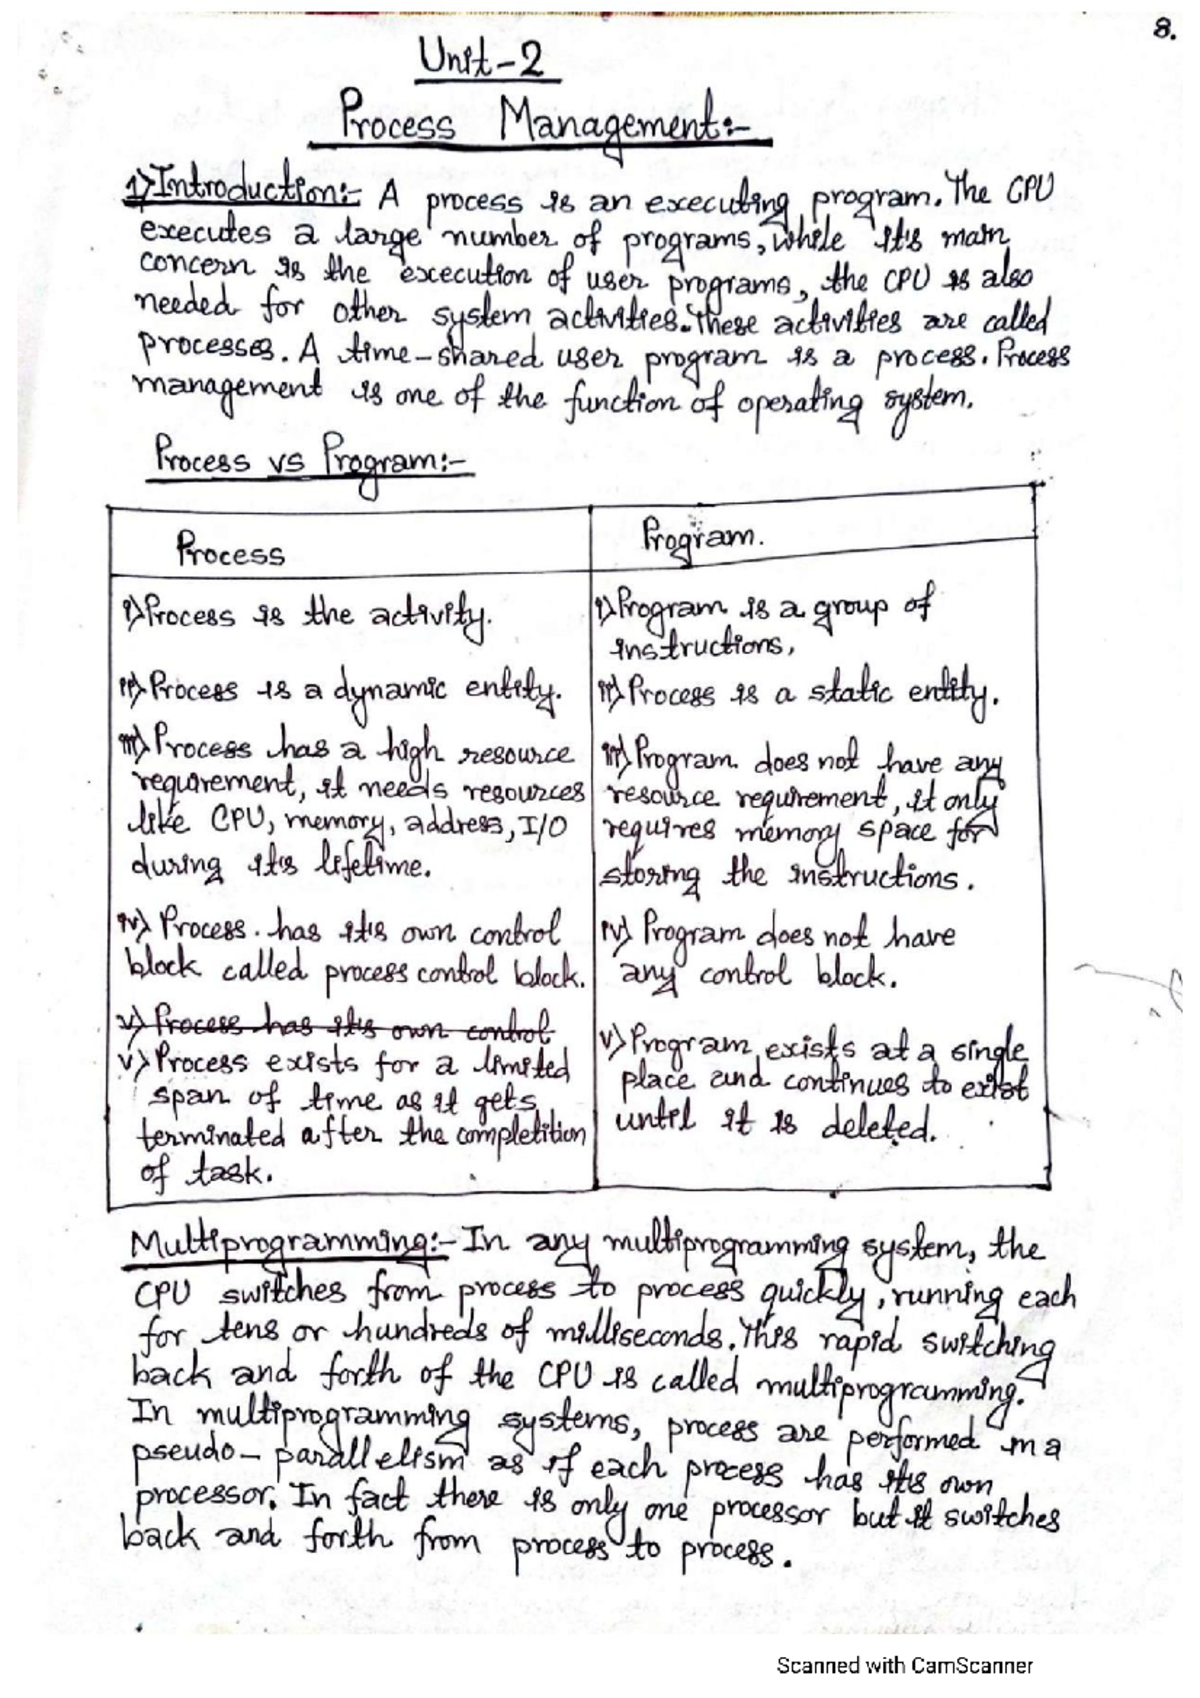 8.
Unit-2
Process Management:-
1) Introduction:- A process is an executing program. The CPU
executes a large number of programs, while it's main
concern is the execution of user programs, the CPU is also
needed for other system activities. These activities are called
processes. A time-shared user program is a process. Process
management is one of the function of operating system.
Process vs Program:-
Process
Program.
i) Process is the activity.
i) Program is a group of
instructions,
ii) Process is a dynamic entity.
ii) Process is a static entity.
iii) Process has a high resource
requirement, it needs resources
like CPU, memory, address, I/O
during it's lifetime.
iii) Program does not have any
resource requirement, it only
requires memory space for
storing the instructions.
iv) Process has it's own control
block called process control block.
iv) Program does not have
any control block.
v) Process has it's own control
v) Process exists for a limited
span of time as it gets
terminated after the completition
of task.
v) Program exists at a single
place and continues to exist
until it is deleted.
Multiprogramming:- In any multiprogramming system, the
CPU switches from process to process quickly, running each
for tens or hundreds of milliseconds. This rapid switching
back and forth of the CPU is called multiprogramming.
In multiprogramming systems, process are performed in a
pseudo-parallelism as if each process has it's own
processor. In fact there is only one processor but it switches
back and forth from process to process.
Scanned with CamScanner